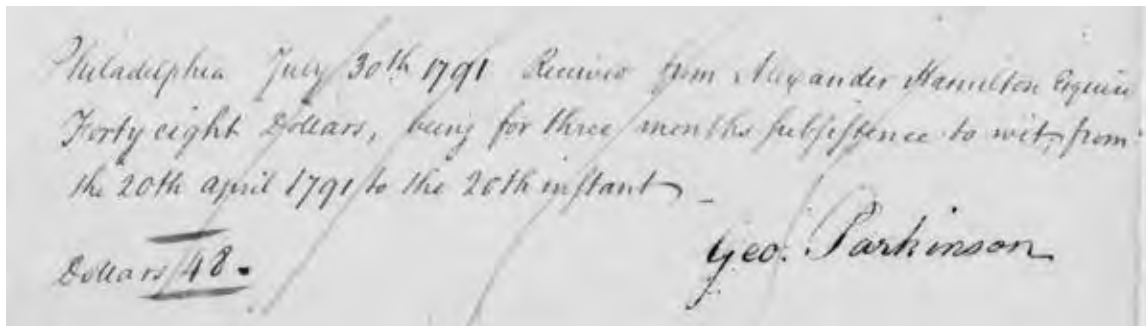 Philadelphia July 30th 1791 Received from Alexander Hamilton Esquire
Forty eight Dollars, being for three months subsistence to wit, from
the 20th april 1791 to the 20th instant _
Dollars 48.
Geo. Parkinson